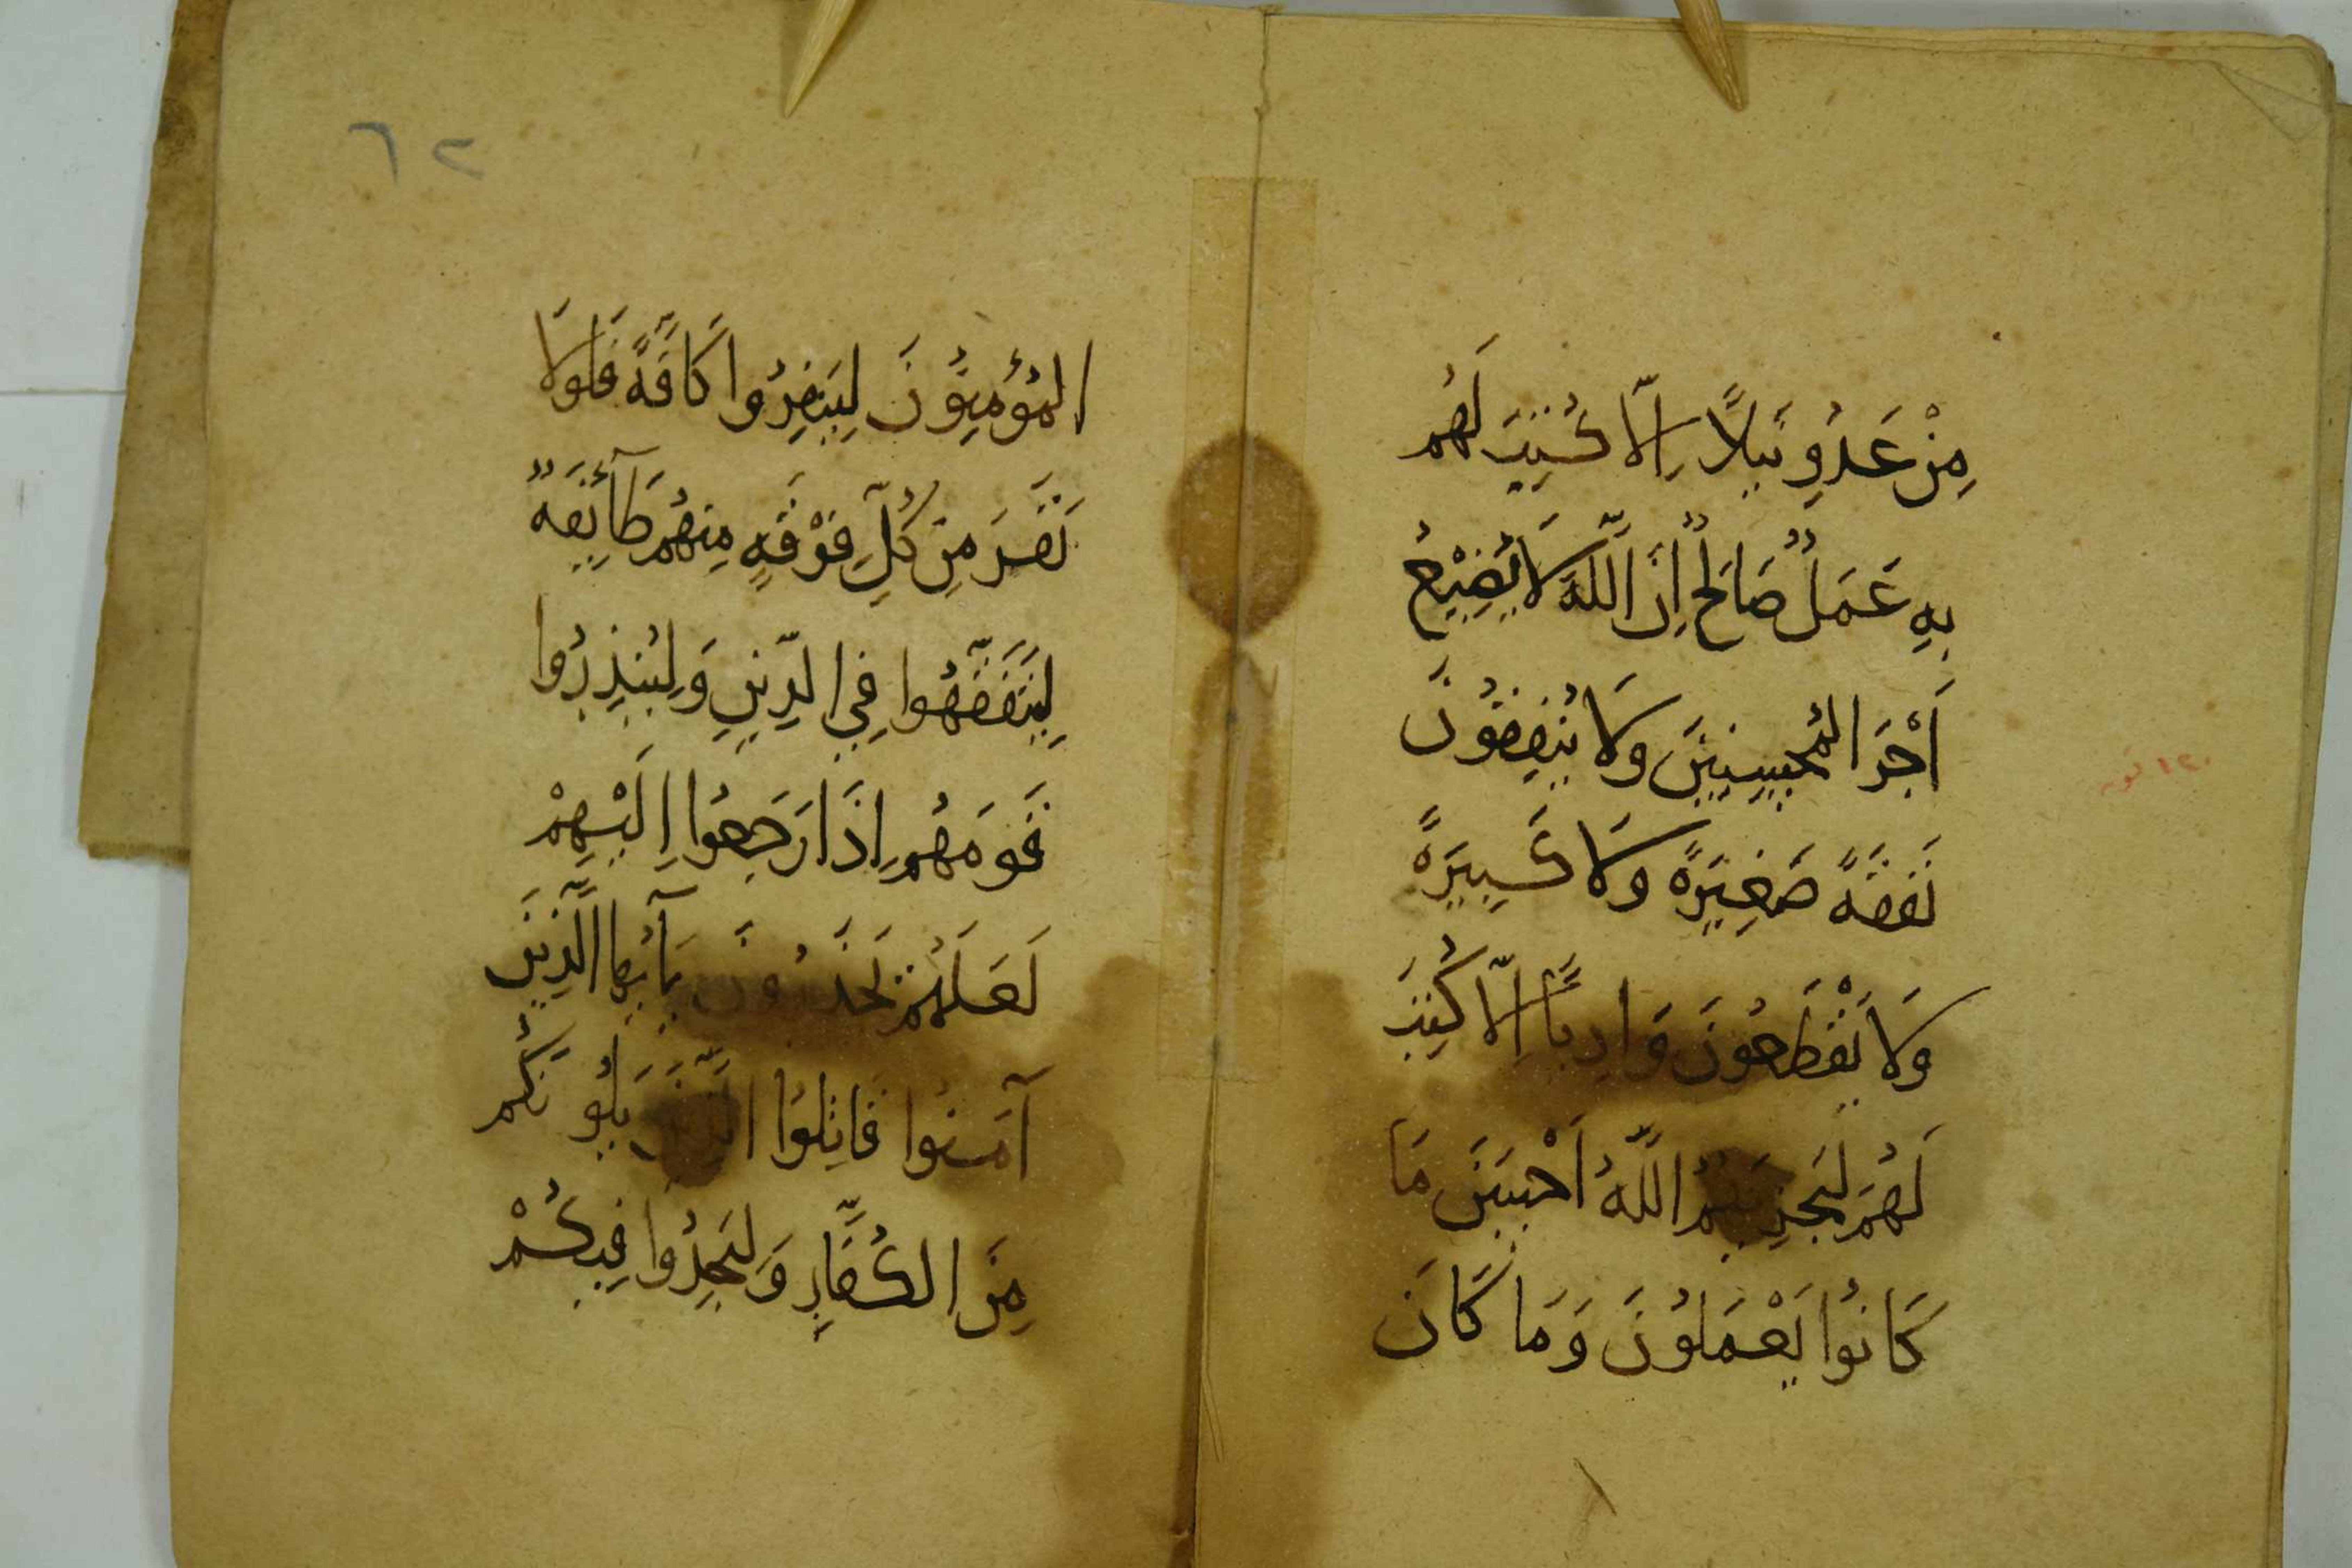 مِنْ عَدُوٍ نَيلاً اِلّا كُتِبَ لَهُم
بِهِ عَمَلٌ صَالحٌ اِنَّ اللّٰهَ لَا يُضِيْعُ
اَجْرَ المُحْسِنِينَ وَلَا يُنفِقُونَ
نَفَقَةً صَغِيرَةً وَلَا كَبِيرَةً
وَلَا يَقْطَعُونَ وَادِياً اِلّا كُتِبَ
لَهُمْ لِيَجزِيَهُمُ اللّٰهُ اَحْسَنَ مَا
كَانُوا يَعْمَلُونَ وَمَا كَانَ
١٢٠ توبه
٦٢
المُؤمِنُونَ لِيَنفِرُوا كَافَّةً فَلَولَا
نَفَرَ مِن كُلِّ فِرْقَةٍ مِنهُم طَآئِفَةٌ
لِيَتَفَقَّهُوا فِي الدِّينِ وَلِيُنذِرُوا
قَومَهُم اِذَا رَجَعُوا اِلَيْهِمْ
لَعَلَهُم يَحْذَرُونَ يَآ اَيُّهَا الَّذِينَ
آمَنُوا قَاتِلُوا الَّذِينَ يَلُونَكُم
مِنَ الكُفَّارِ وَليَجِدُوا فِيكُمْ